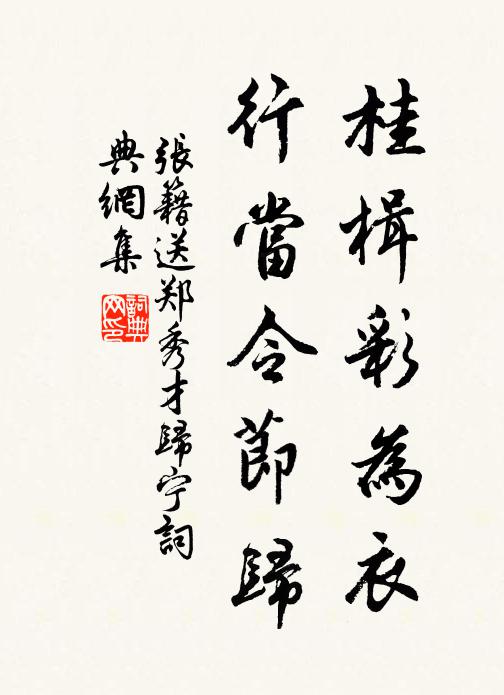 桂楫彩為衣
行當令節歸
張籍送郑秀才歸宁詞
典網集
詞典
网印